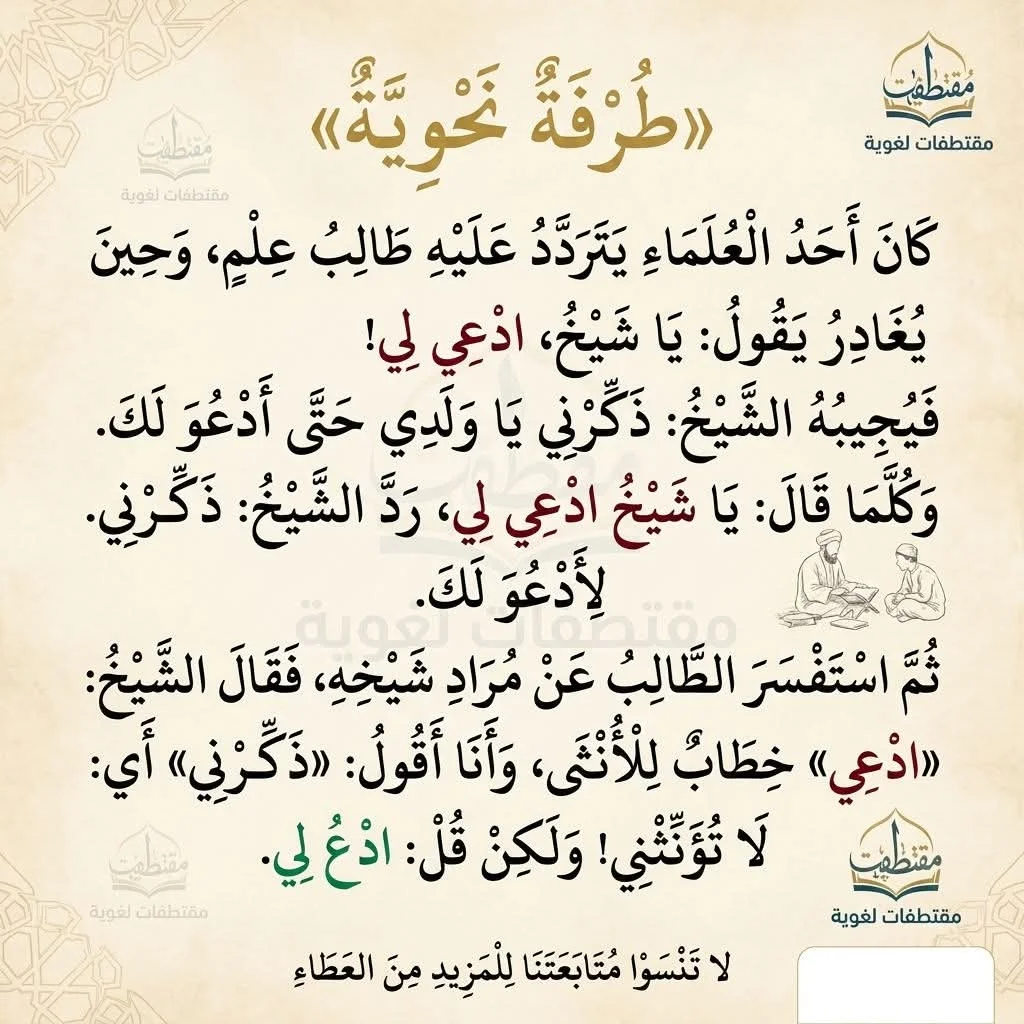 «طُرْفَةٌ نَحْوِيَّةٌ»
مقتطفات
مقتطفات لغوية
مقتطفات
مقتطفات لغوية
كَانَ أَحَدُ الْعُلَمَاءِ يَتَرَدَّدُ عَلَيْهِ طَالِبُ عِلْمٍ، وَحِينَ
يُغَادِرُ يَقُولُ: يَا شَيْخُ، ادْعِي لِي!
فَيُجِيبُهُ الشَّيْخُ: ذَكِّرْنِي يَا وَلَدِي حَتَّى أَدْعُوَ لَكَ.
وَكُلَّمَا قَالَ: يَا شَيْخُ ادْعِي لِي، رَدَّ الشَّيْخُ: ذَكِّرْنِي.
لِأَدْعُوَ لَكَ.
مقتطفات
مقتطفات لغوية
ثُمَّ اسْتَفْسَرَ الطَّالِبُ عَنْ مُرَادِ شَيْخِهِ، فَقَالَ الشَّيْخُ:
«ادْعِي» خِطَابٌ لِلْأُنْثَى، وَأَنَا أَقُولُ: «ذَكِّرْنِي» أَي:
لَا تُؤَنِّثْنِي! وَلَكِنْ قُلْ: ادْعُ لِي.
مقتطفات
مقتطفات لغوية
مقتطفات
مقتطفات لغوية
لا تَنْسَوْا مُتَابَعَتَنَا لِلْمَزِيدِ مِنَ العَطَاءِ